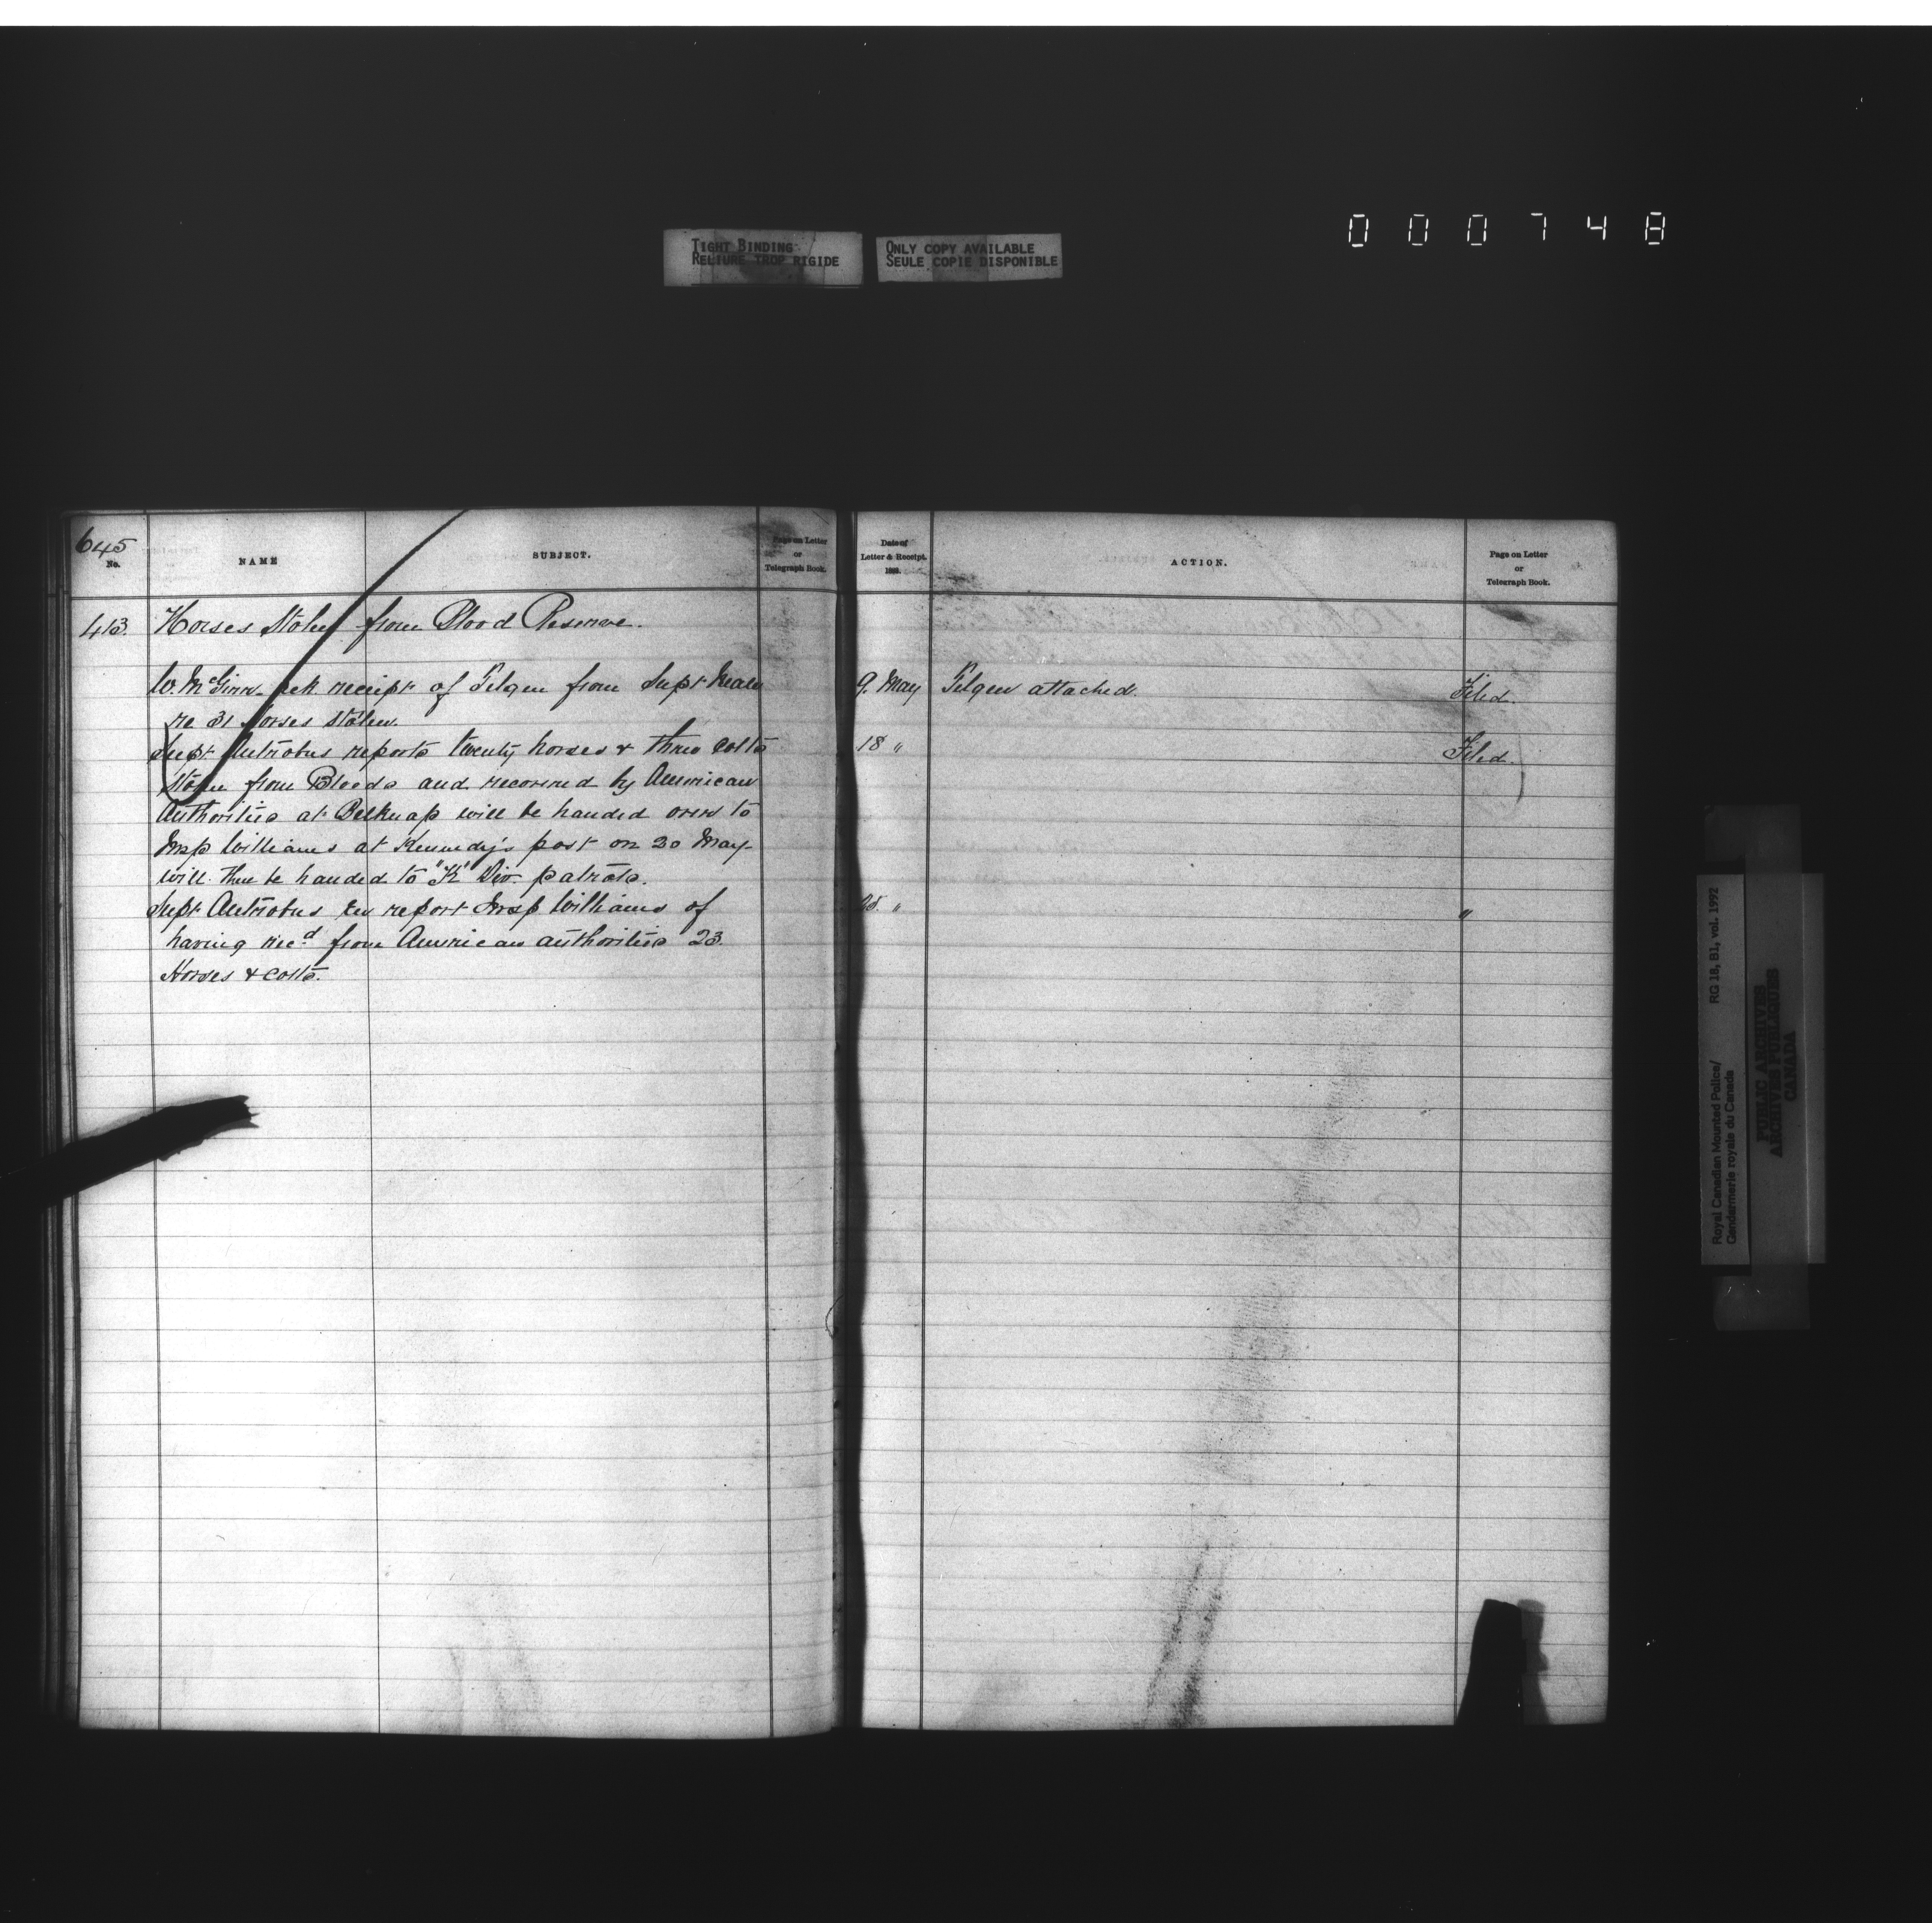 000748
TIGHT BINDING
RELIURE TROP RIGIDE
ONLY COPY AVAILABLE
SEULE COPIE DISPONIBLE
645
No.
NAME
SUBJECT.
Page on Letter
or
Telegraph Book.
Date of
Letter & Receipt.
188
ACTION.
Page on Letter
or
Telegraph Book.
413. Horses Stolen from Blood Reserve.
W. McGinn ack receipt of Telgm from Supt Neale 9. May Telgm attached. Filed.
re 31 Horses stolen.
Supt Antrobus reports twenty horses & three colts 18 " Filed.
stolen from Bloods and recovered by American
Authorities at Belknap will be handed over to
Insp Williams at Kennedy's post on 20 May
will then be handed to "K" Div. patrols.
Supt Antrobus report Insp Williams of " "
having recd from American authorities 23
Horses & colts.
Royal Canadian Mounted Police/ RG 18, B1, vol. 1992
Gendarmerie royale du Canada
PUBLIC ARCHIVES
ARCHIVES PUBLIQUES
CANADA